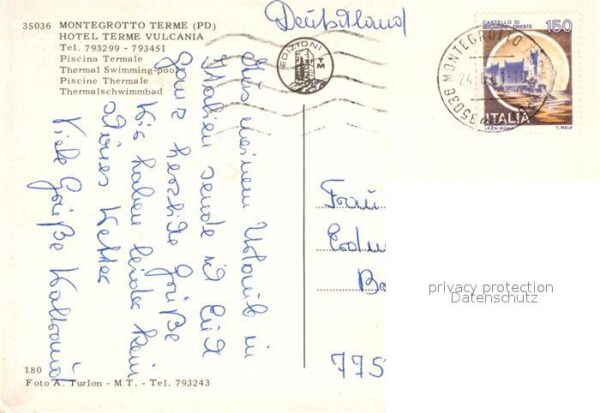 35036 MONTEGROTTO TERME (PD)
HOTEL TERME VULCANIA
Tel. 793299 - 793451
Piscina Termale
Thermal Swimming-pool
Piscine Thermale
Thermalschwimmbad
Deutschland
EDIZIONI
TM
35036 MONTEGROTTO
24
CASTELLO DI
150
ITALIA
I.P.Z.S.-ROMA
E. VELE
Aus meinem Urlaub in
Italien sende ich Euch
ganz herzliche Grüße
Wir haben leider kein
schönes Wetter
Viele Grüße Waltraud
Frau
privacy protection
Datenschutz
775
180
Foto A. Turlon - M.T. - Tel. 793243